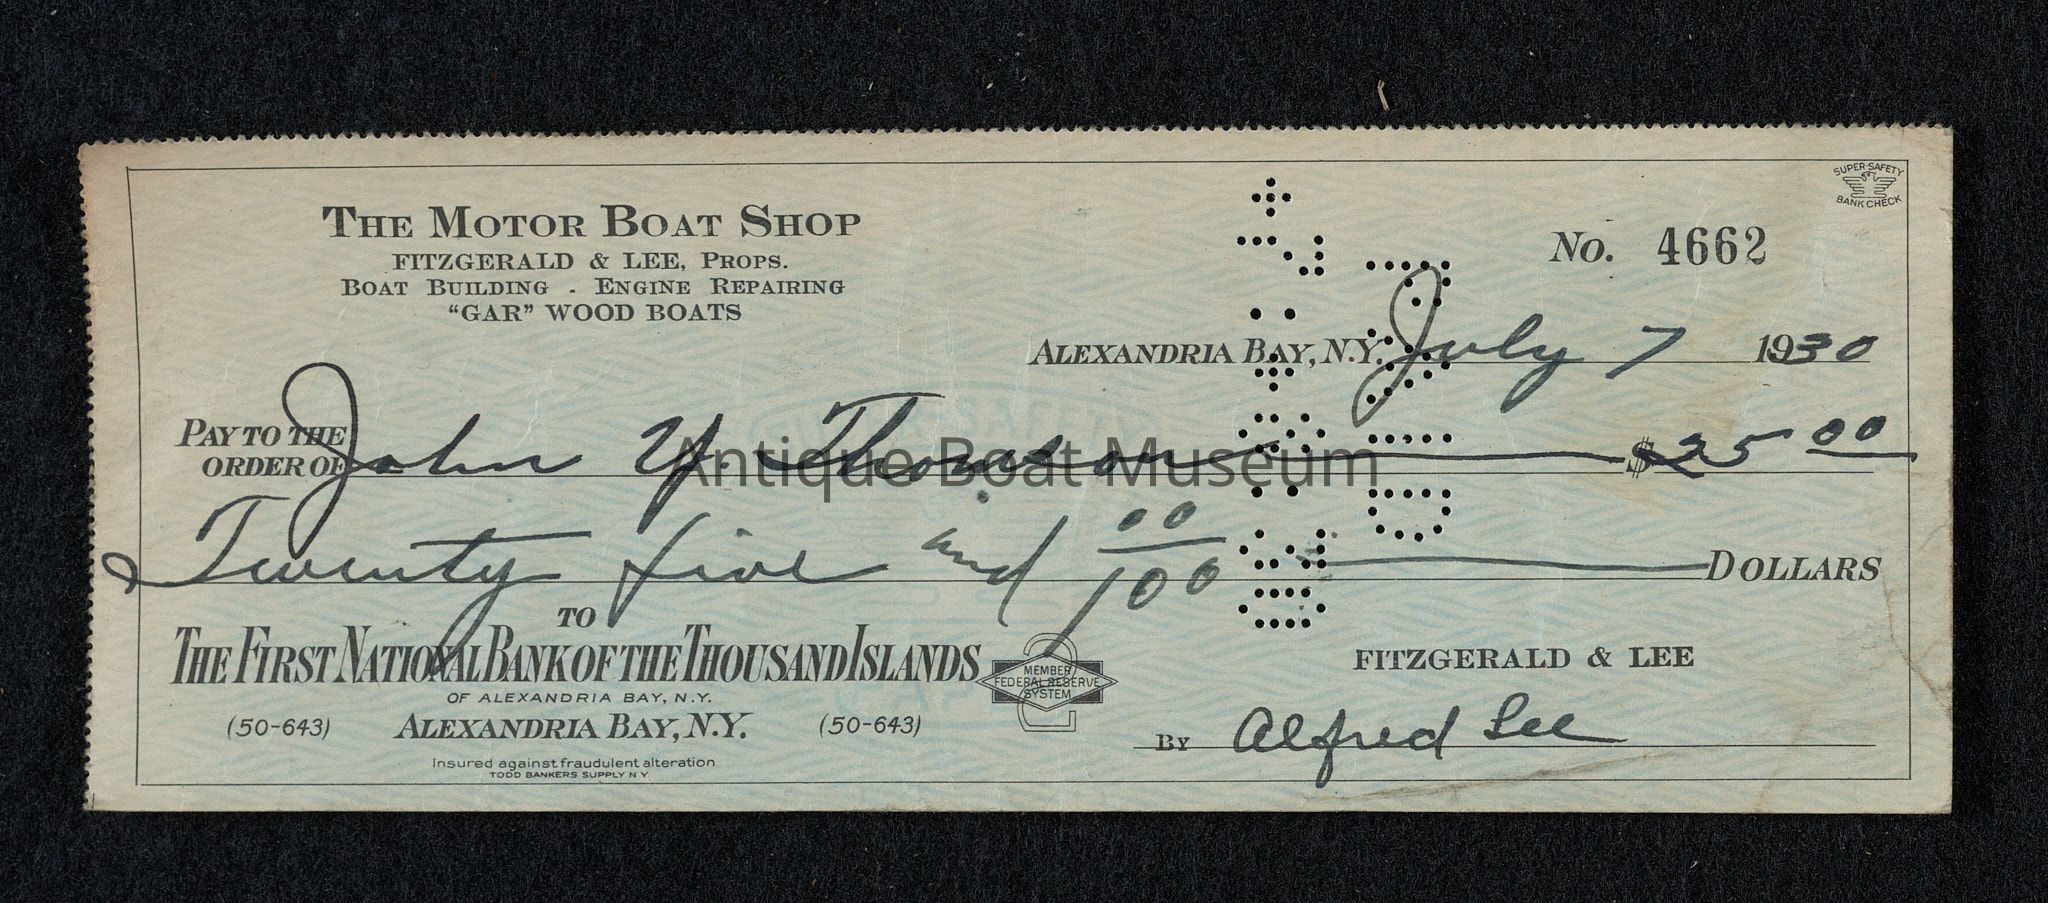 SUPER-SAFETY
BANK CHECK
THE MOTOR BOAT SHOP
FITZGERALD & LEE, PROPS.
BOAT BUILDING - ENGINE REPAIRING
"GAR" WOOD BOATS
No. 4662
ALEXANDRIA BAY, N.Y. July 7 1930
PAY TO THE
ORDER OF John Y. Thomson $25 00
Antique Boat Museum
Twenty five and 00/100 DOLLARS
TO
THE FIRST NATIONAL BANK OF THE THOUSAND ISLANDS
OF ALEXANDRIA BAY, N.Y.
(50-643) ALEXANDRIA BAY, N.Y. (50-643)
Insured against fraudulent alteration
TODD BANKERS SUPPLY N Y
MEMBER
FEDERAL RESERVE
SYSTEM
FITZGERALD & LEE
BY Alfred Lee